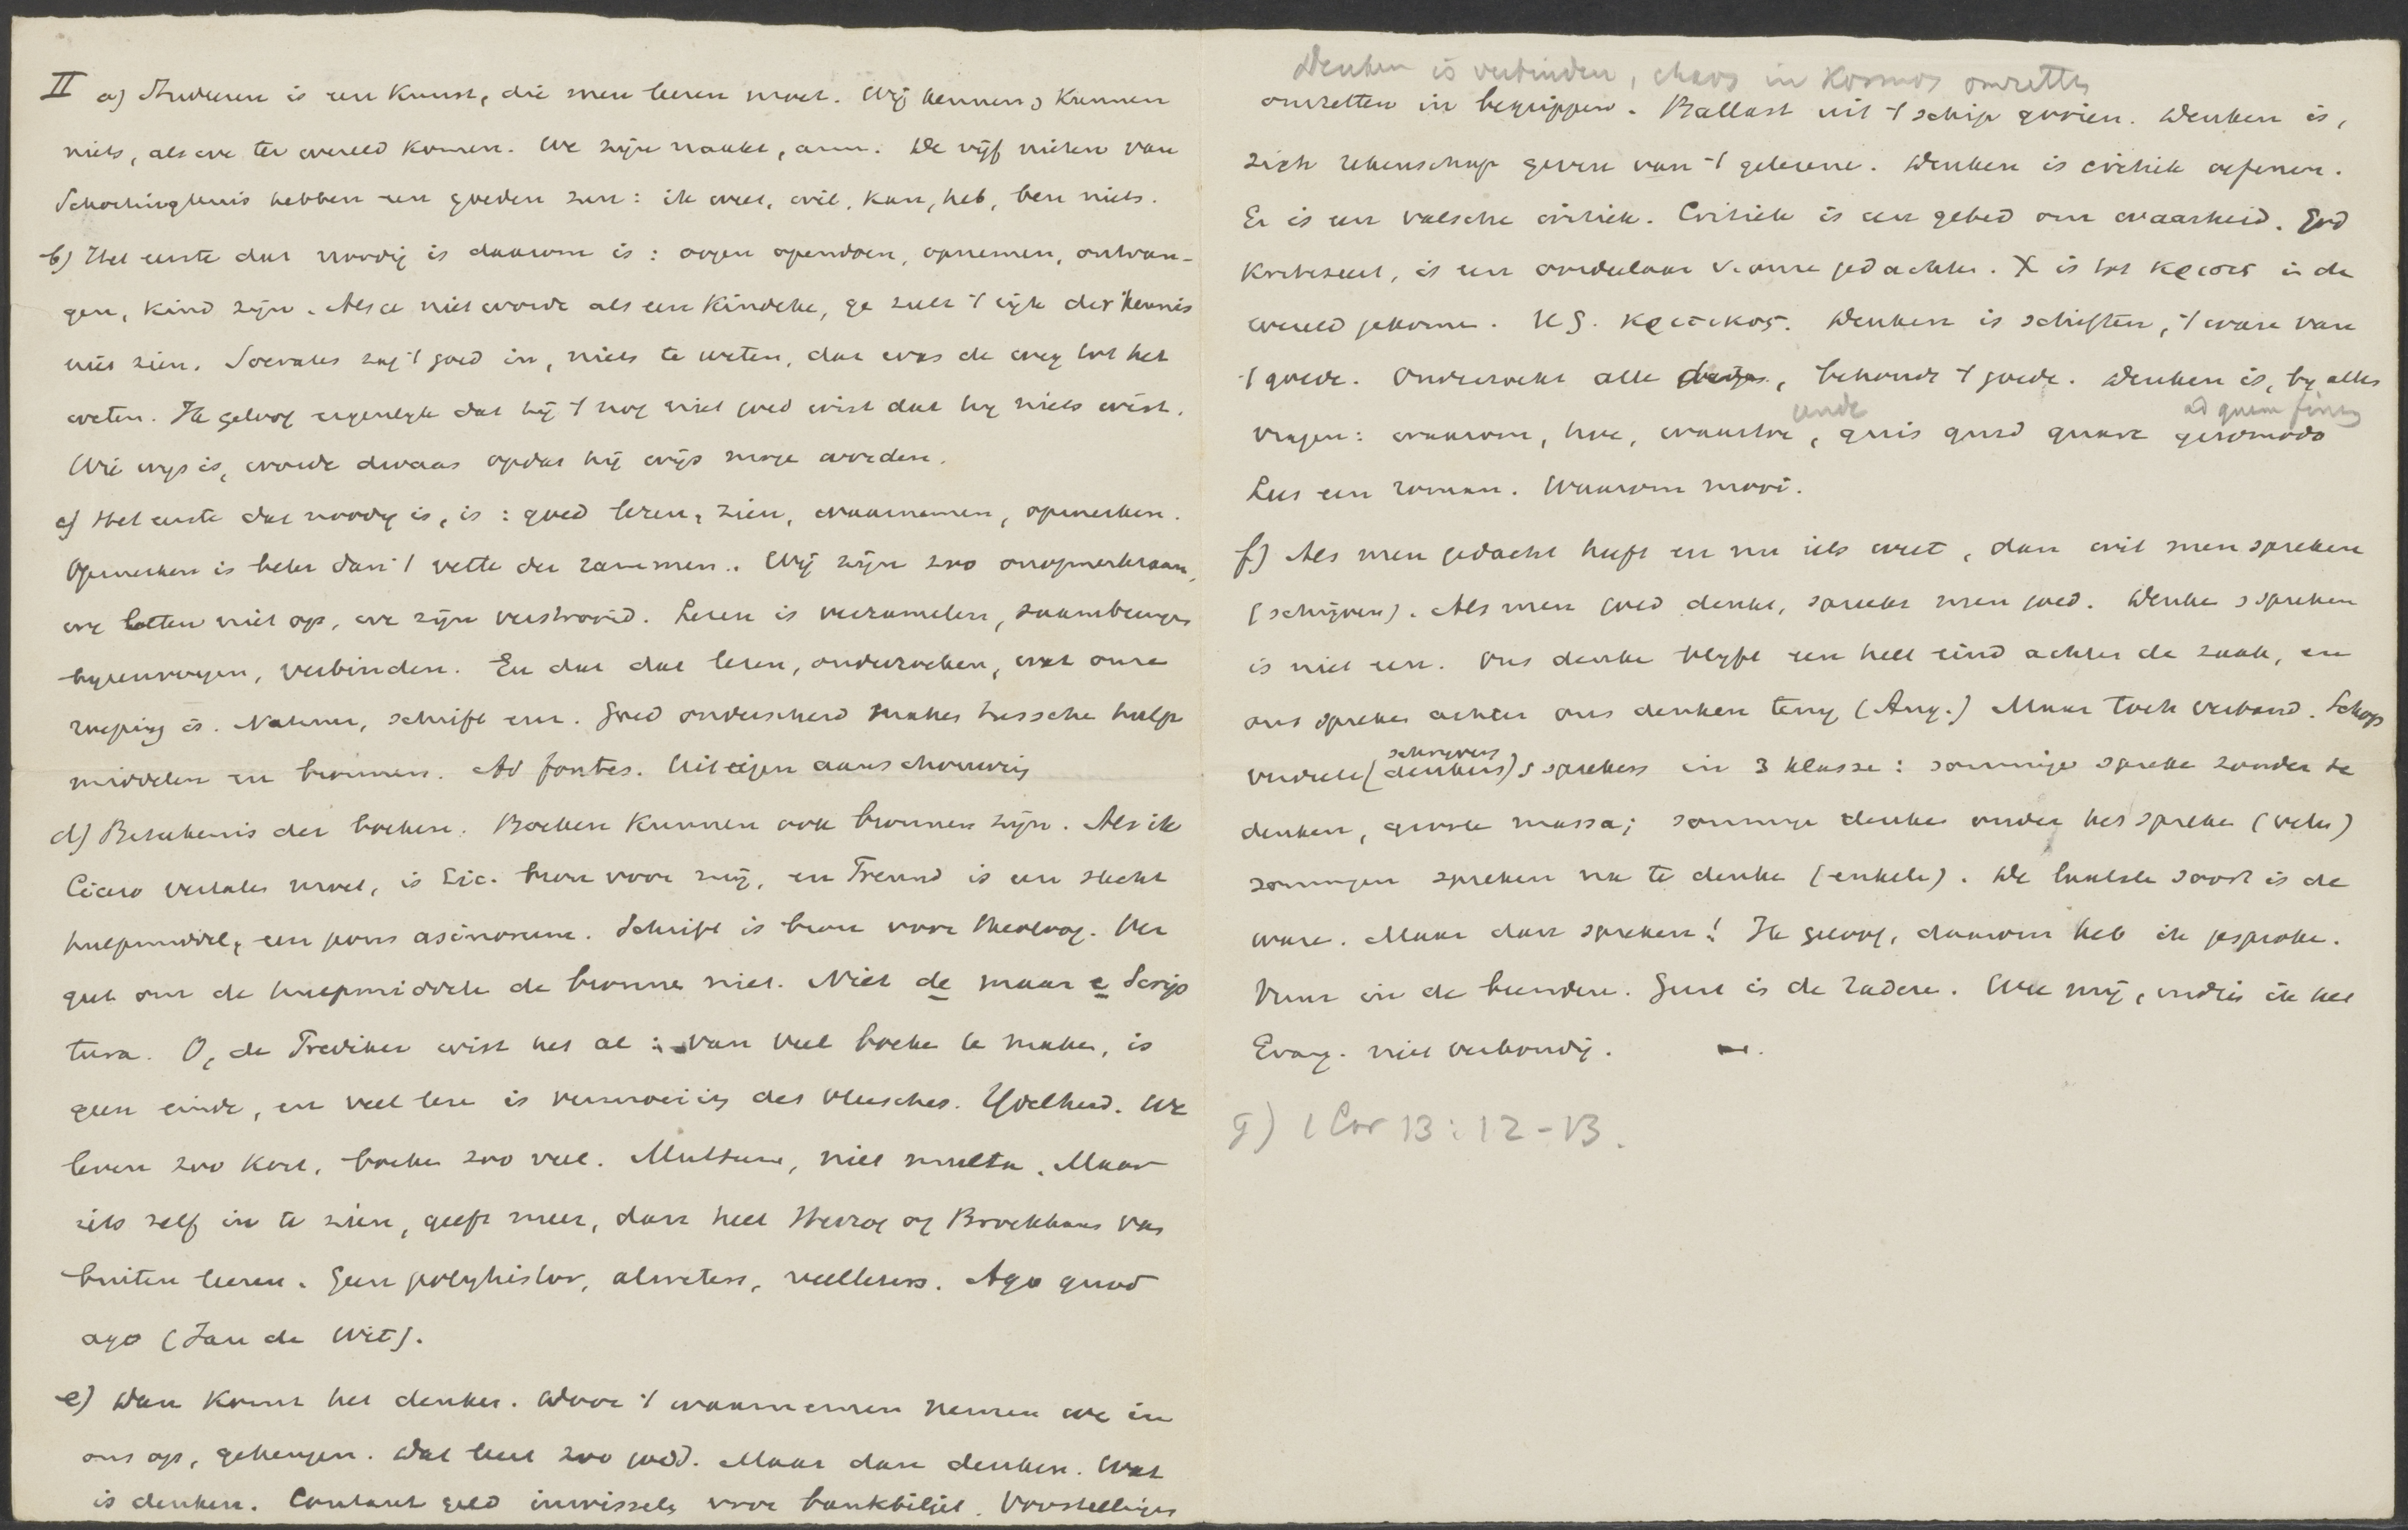 II a) Studeeren is een Kunst, die men leeren moet. Wij kennen, kunnen
niets, als we ter wereld komen. We zijn naakt, arm. De vijf nieten van
Schortinghuis hebben een goeden zin: ik weet, wil, kan, heb, ben niets.
b) Het eerste dat noodig is daarom is: oogen opendoen, opnemen, ontvan-
gen, kind zijn. Als ge niet wordt als een Kindeke, ge zult 't rijk der kennis
niet zien. Socrates zag 't goed in, niets te weten, dat was de weg tot het
weten. Ik geloof eigenlijk dat hij 't nog niet goed wist dat hij niets wist.
Wie wijs is, worde dwaas opdat hij wijs moge worden.
c) Het eerste dat noodig is, is: goed lezen, zien, waarnemen, opmerken.
Opmerken is beter dan 't vette der rammen. Wij zijn zoo onopmerkzaam,
we letten niet op, we zijn verstrooid. Lezen is verzamelen, saambrengen
bijeenvoegen, verbinden. En dat dat lezen, onderzoeken, wat onze
roeping is. Natuur, schrift enz. Goed onderscheid maken tusschen hulp
middelen en bronnen. Ad fontes. Uit eigen aanschouwing
d) Beteekenis der boeken. Boeken kunnen ook bronnen zijn. Als ik
Cicero vertalen moet, is Cic. bron voor mij, en Freund is een slecht
hulpmiddel, een pons asinorum. Schrift is bron voor theoloog. Ver
geet om de hulpmiddelen de bronnen niet. Niet de maar e Scrip
tura. O, de Prediker wist het al: van veel boeken te maken, is
geen einde, en veel lezen is vermoeiing des vleesches. IJdelheid. We
leven zoo kort, boeken zoo veel. Multum, niet multa. Maar
iets zelf in te zien, geeft meer, dan heel Herzog of Brockhaus van
buiten leeren. Geen polyhistor, alweters, veellezers. Ago quod
ago (Jan de Wit).
e) Dan komt het denken. Door 't waarnemen nemen we in
ons op, geheugen. Dat leert zoo goed. Maar dan denken. Wat
is denken. Contant geld inwisselen voor bankbiljet. Voorstellingen
Denken is verbinden, chaos in Kosmos omzetten
omzetten in begrippen. Ballast uit 't schip gooien. Denken is,
zich rekenschap geven van 't gelezene. Denken is critiek oefenen.
Er is een valsche critiek. Critiek is een gebed om waarheid. God
Kritiseert, is een oordeelaar v. onze gedachten. X is tot κρισις in de
wereld gekomen. H S. κριτικος. Denken is schiften, 't ware van
't goede. Onderzoekt alle dinge, behoudt 't goede. Denken is, bij alles
unde ad quem finem
vragen: waarom, hoe, waartoe, quis quid quare quomodo
Lees een roman. Waarom mooi.
f) Als men gedacht heeft en nu iets weet, dan wil men spreken
(schrijven). Als men goed denkt, spreekt men goed. Denken & spreken
is niet een. Ons denken blijft een heel eind achter de zaak, en
ons spreken achter ons denken terug (Aug.) Maar toch verband. Schop
schrijvers
verdeelt (denkers) & sprekers in 3 klasse: sommige spreken zonder te
denken, groote massa; sommige denken onder het spreken (vele)
sommigen spreken na te denken (enkele). De laatste soort is de
ware. Maar dan spreken! Ik geloof, daarom heb ik gesproken.
Vuur in de beenderen. Geest is de raderen. Wee mij, indien ik het
Evang. niet verkondig.
g) 1 Cor 13:12-13.